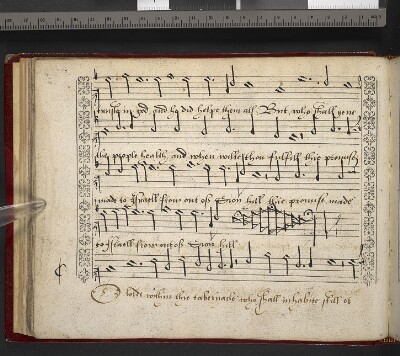 trust in god, and he did helpe them all. But who shall geve
thy people health, and when wilt thou fulfill thie promise
made to Israell from out of Sion hill thie promise made
to Israell from out of Sion hill.
lorde within thie tabernacle who shall inhabite still or